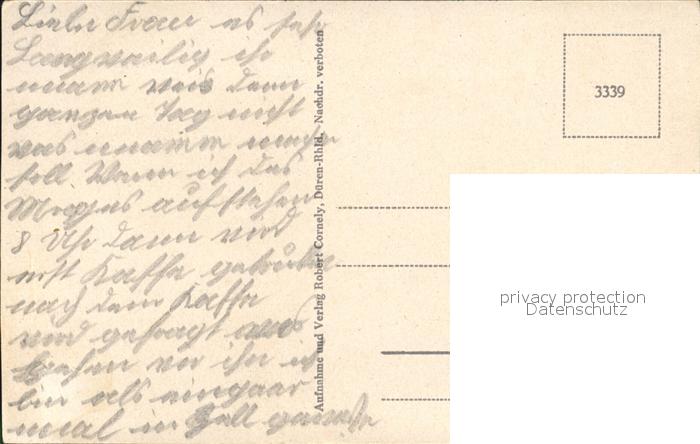 Liebe Frau es sehr
Langweilig ihr
mann weis denn
ganzen Tag nicht
was mann machen
soll Wenn ich des
Morgens aufstehen
8 Uhr dann wird
erst Kaffe getrunken
nach dem Kaffe
wird gefragt was
wir
bin als eingaar
mal in Zell
Aufnahme und Verlag Robert Cornely, Düren-Rhld. Nachdr. verboten
3339
privacy protection
Datenschutz